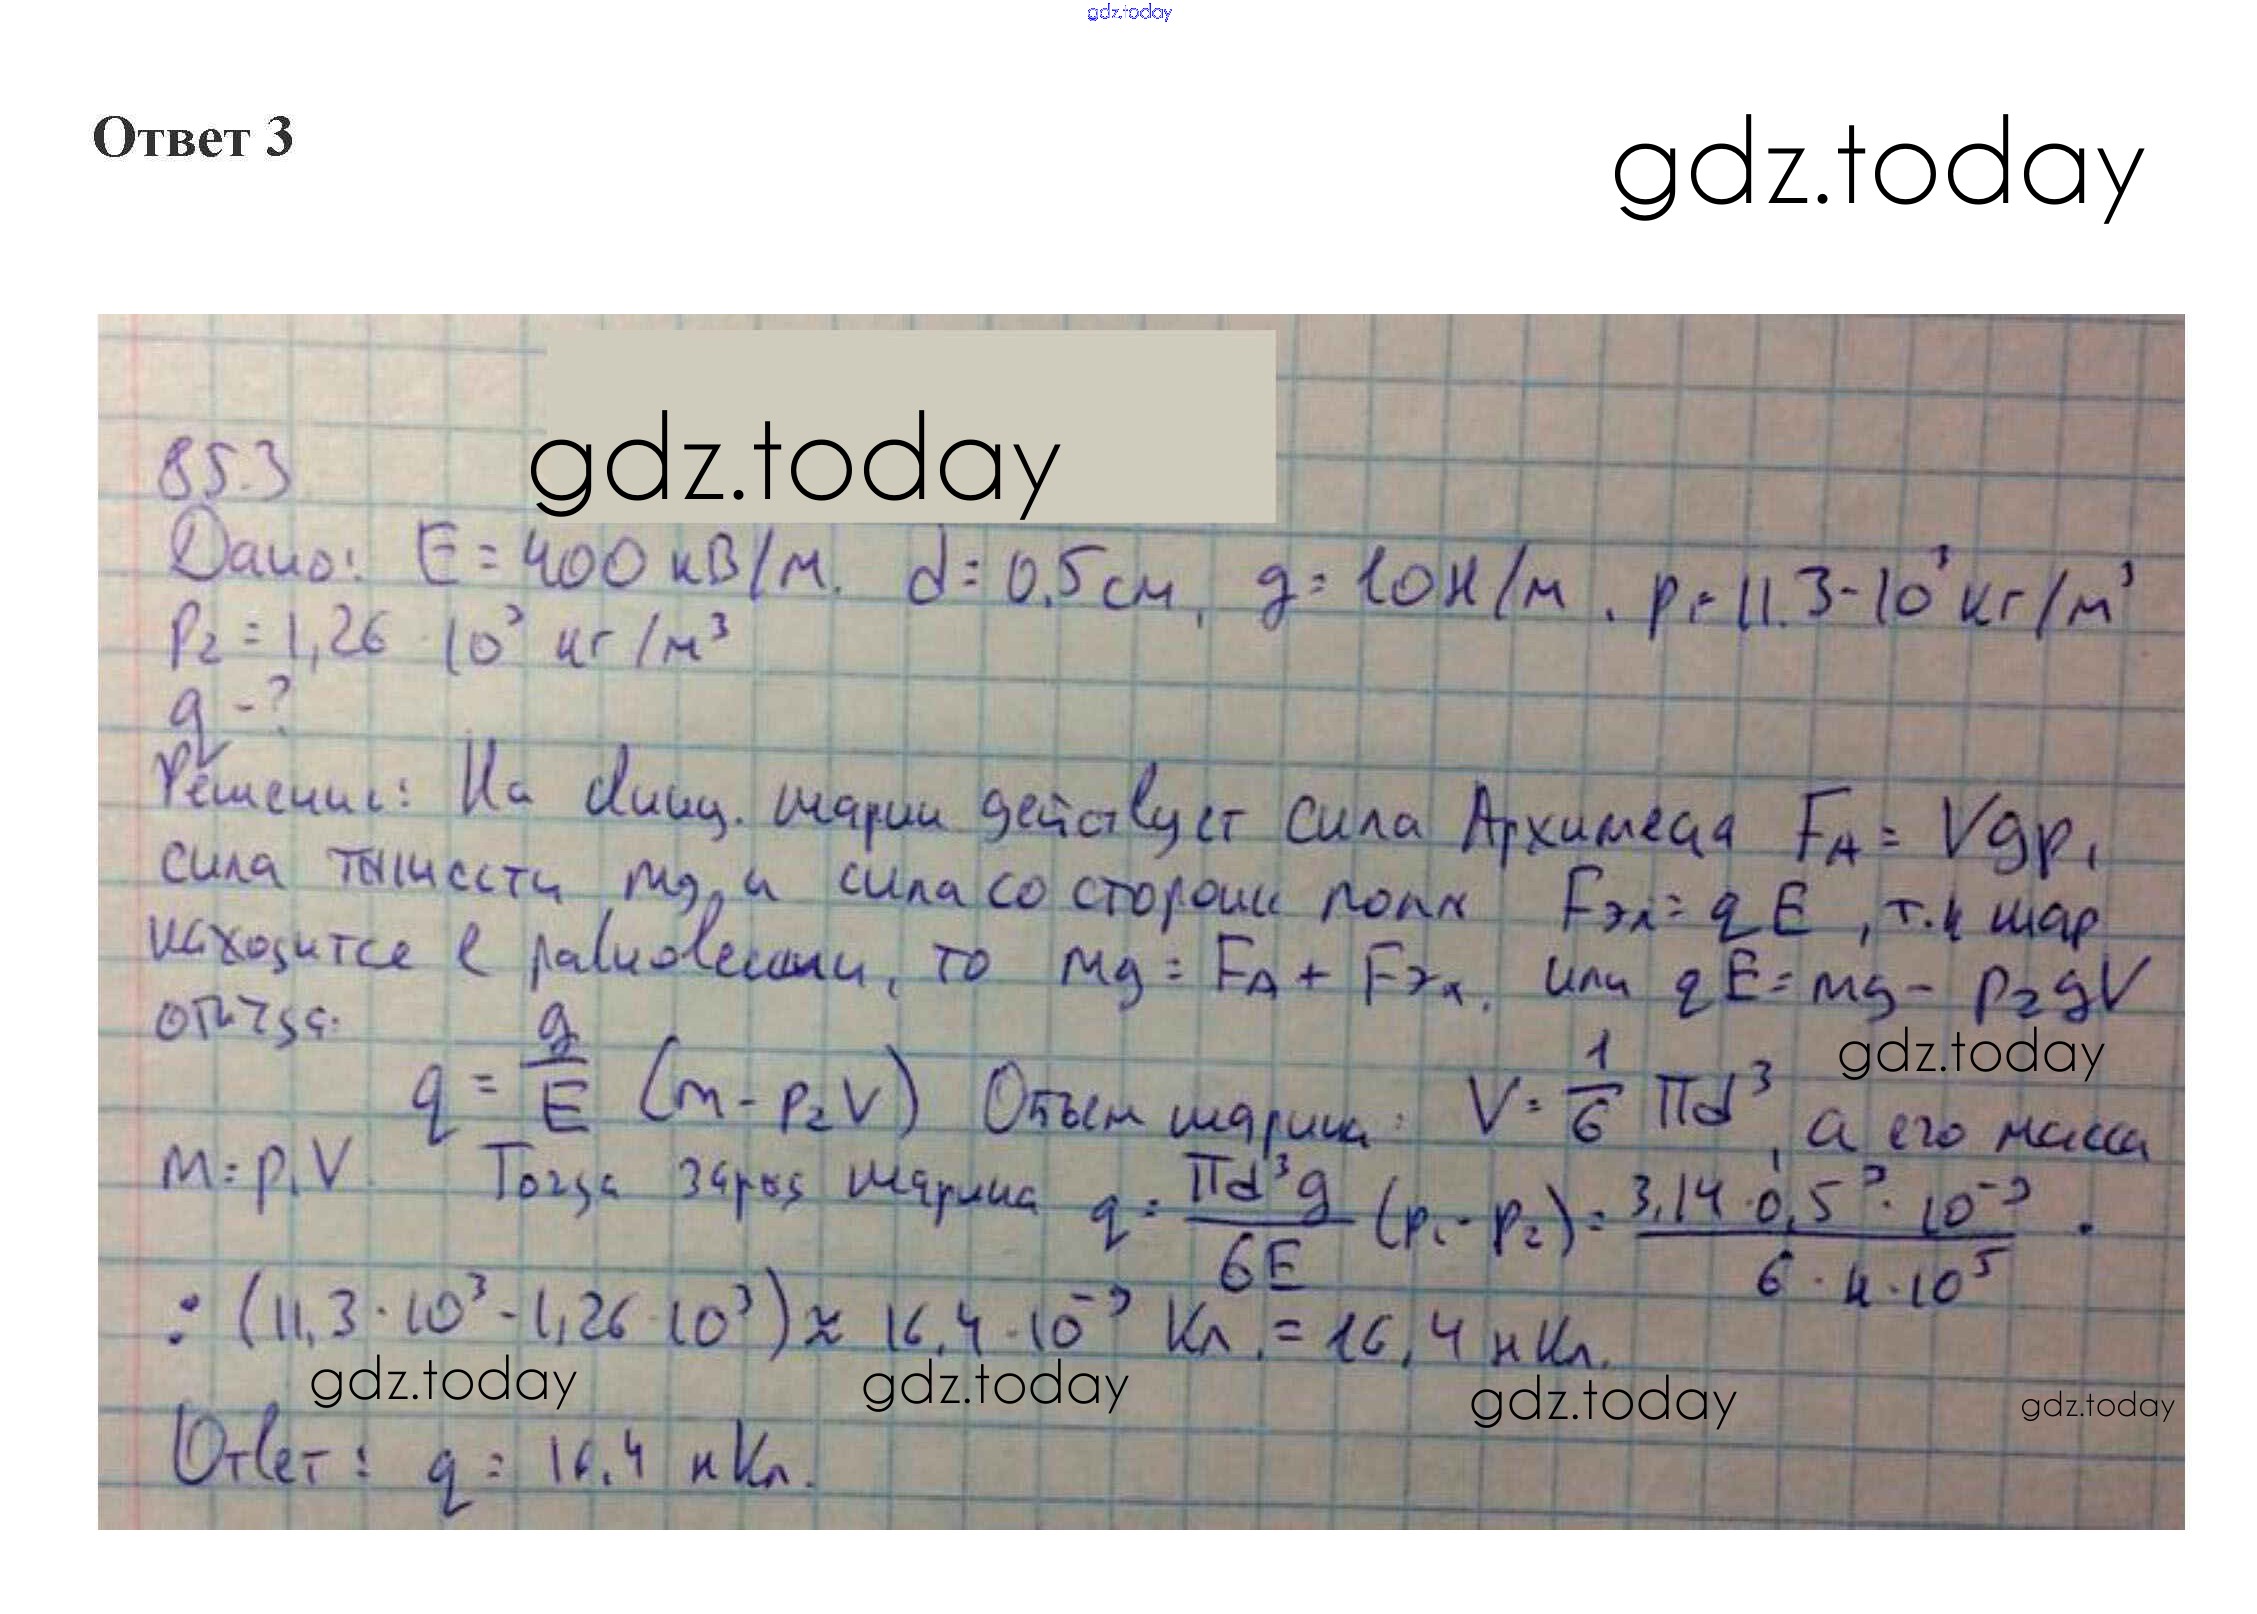 gdz.today
Ответ 3
gdz.today
gdz.today
85.3
Дано: E = 400 кВ/м. d = 0.5 см, g = 10 Н/м. p₁ = 11.3·10³ кг/м³
p₂ = 1,26·10³ кг/м³
q - ?
Решение: На шарик действует сила Архимеда F_A = Vgp₁
сила тяжести mg, и сила со стороны поля F_эл = qE, т.к шар
находится в равновесии, то mg = F_A + F_эл. или qE = mg - p₂gV
gdz.today
откуда.
q = g/E (m - p₂V) Объем шарика: V = 1/6 πd³, а его масса
m = p₁V. Тогда заряд шарика q = πd³g/6E (p₁ - p₂) = 3,14·0,5³·10⁻³/6·4·10⁵ ·
: (11,3·10³ - 1,26·10³) ≈ 16,4·10⁻⁹ Кл. = 16,4 нКл.
gdz.today gdz.today gdz.today gdz.today
Ответ: q = 16.4 нКл.